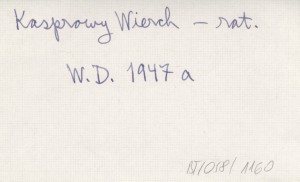 Kasprowy Wierch – rat.
W.D. 1947 a
IV/058/1160